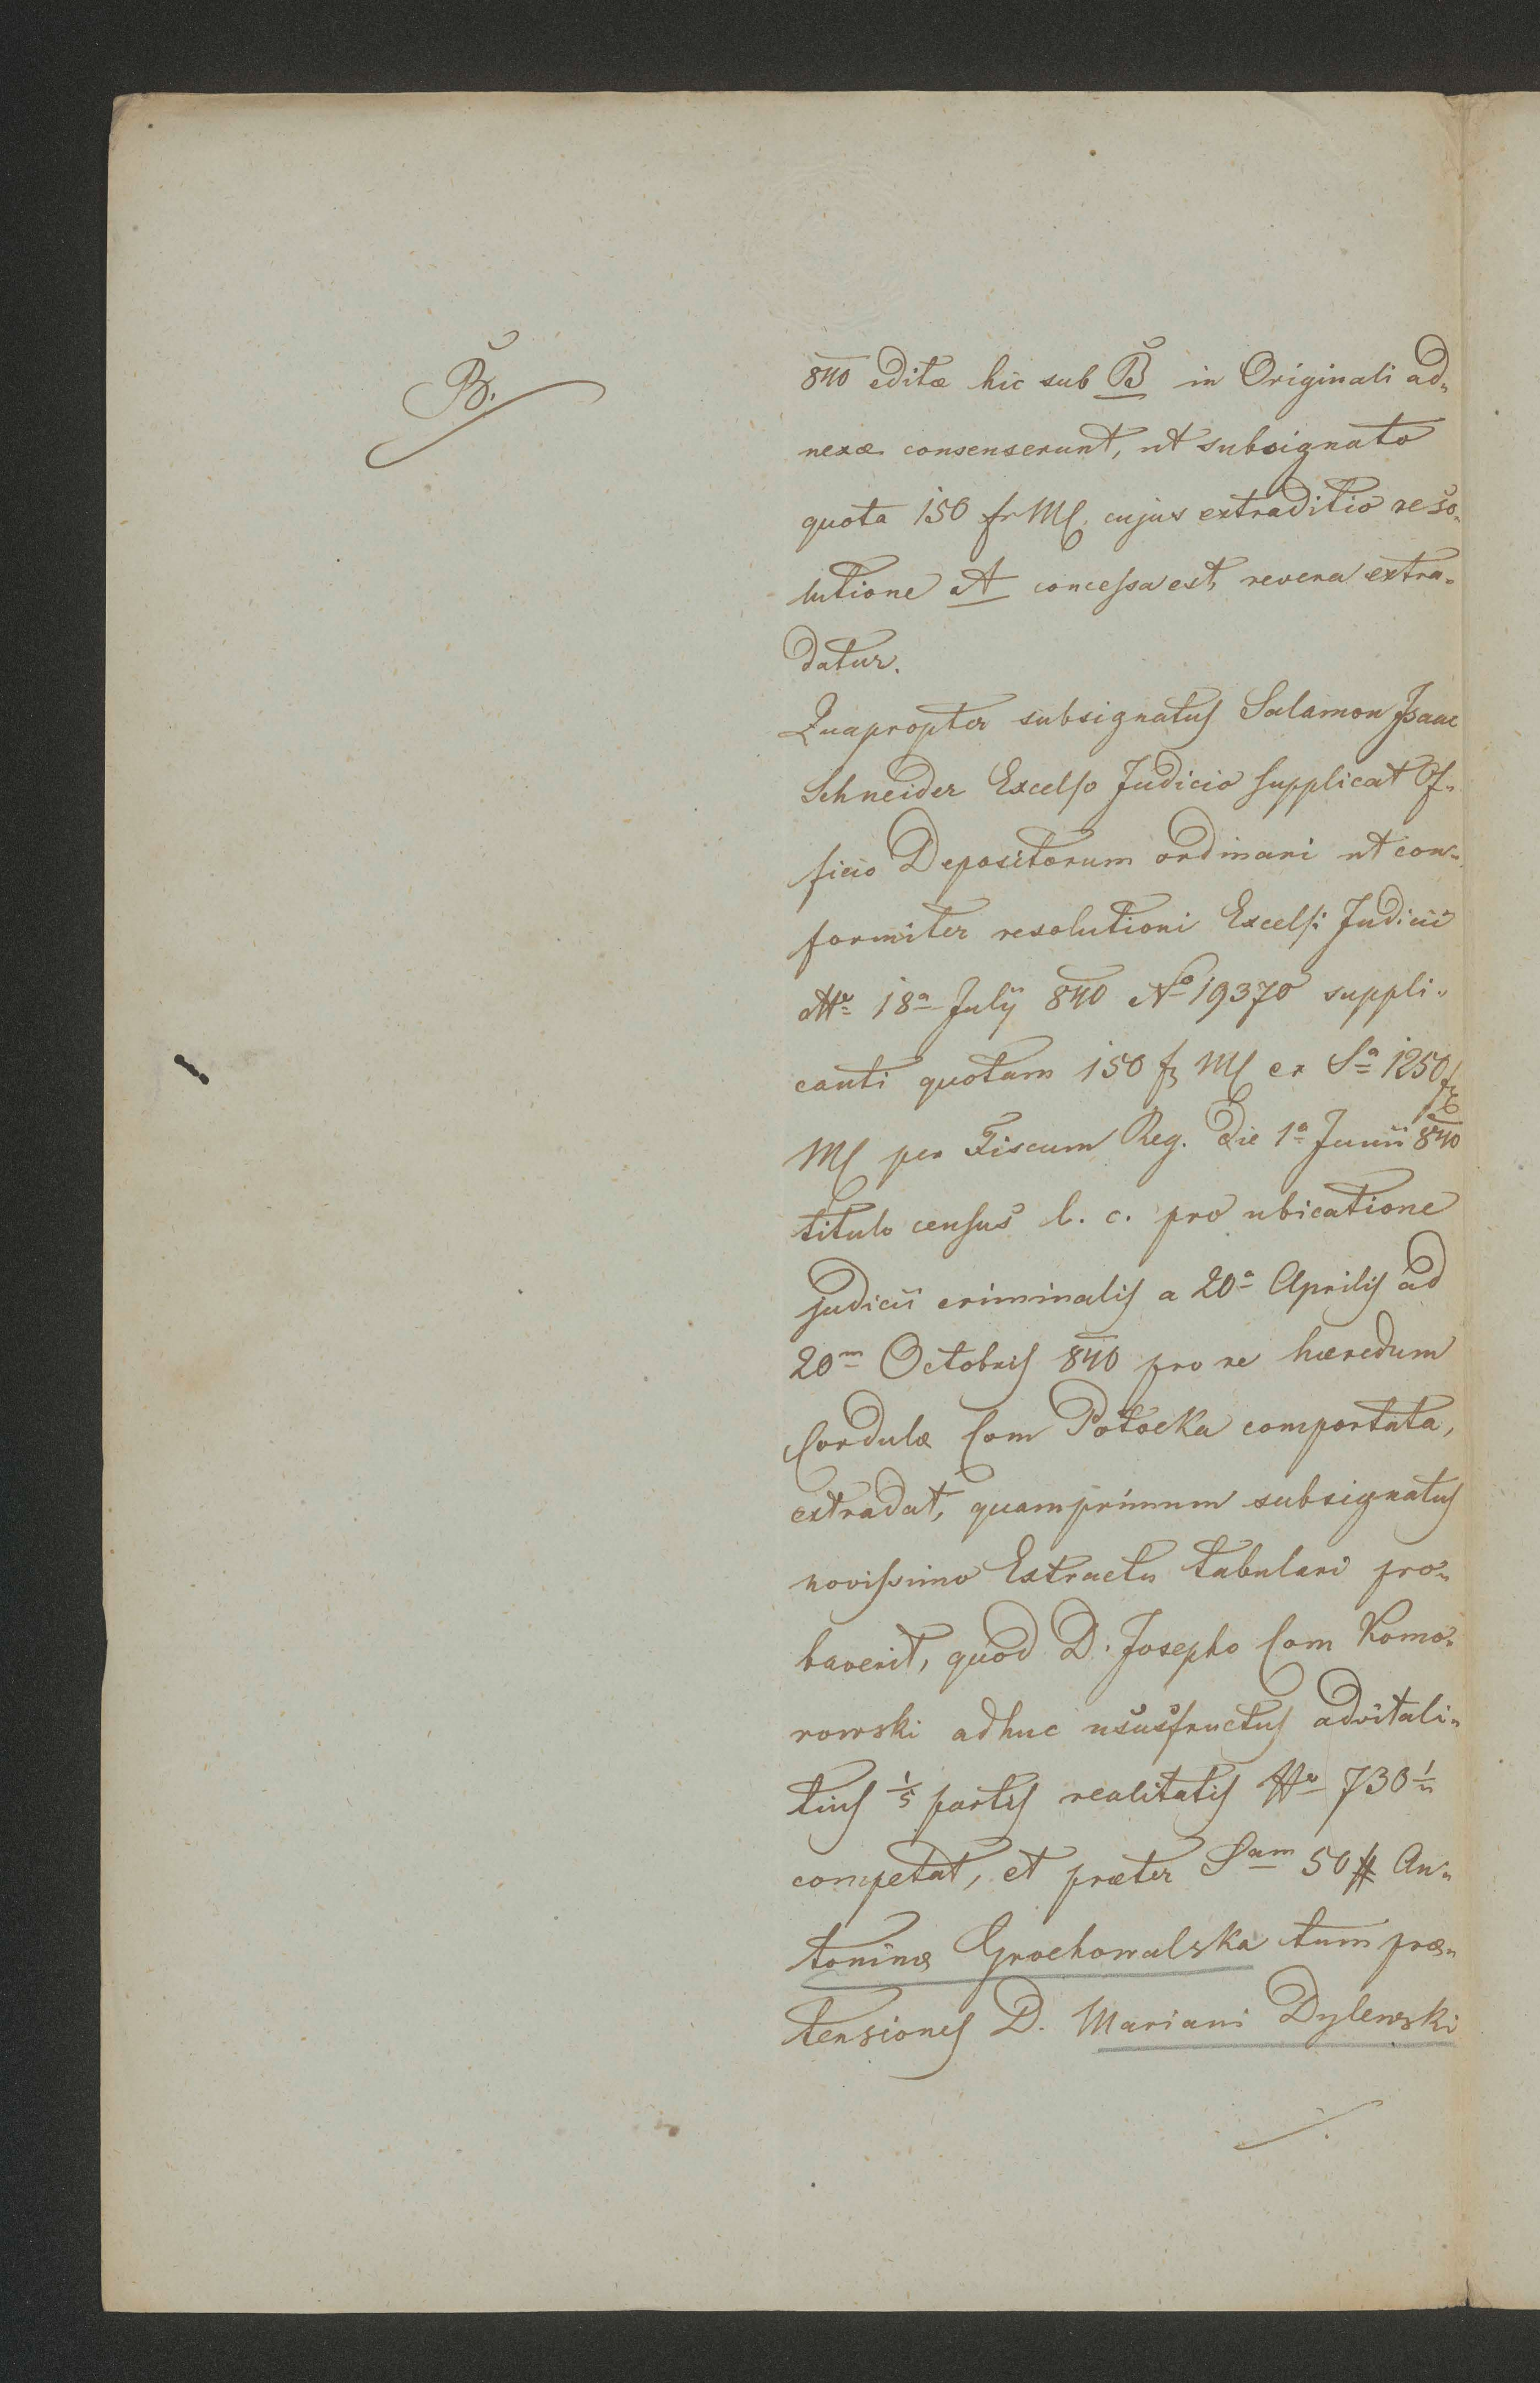 B.
840 editæ hic sub B in Originali ad„
nexæ consenserunt, ut subsignato
quota 150 fr MC, cujus extraditio reso„
lutione A concessa est, revera extra„
datur.
Quapropter subsignatus Salamon Isaac
Schneider Excelso Judicio supplicat Of„
ficio Depositorum ordinari ut con„
formiter resolutioni Excelsi Judicii
18a July 840 No 19370 suppli„
canti quotam 150 fr MC ex Sa 1250 fr
MC per Fiscum Reg. die 1a Junii 840
titulo census l. c. pro ubicatione
judicii criminalis a 20a Aprilis ad
20m Octobris 840 pro re hæredum
Cordulæ Com Potocka comportata,
extradat, quamprimum subsignatus
novissimo Extractu tabulari pro„
baverit, quod D. Josepho Com Komo„
rowski adhuc ususfructus advitali„
tius 1/5 partis realitatis 730
competat, et præter Sam 50 # An„
toninæ Grochowalska tum præ„
tensiones D. Mariani Dylewski
./.